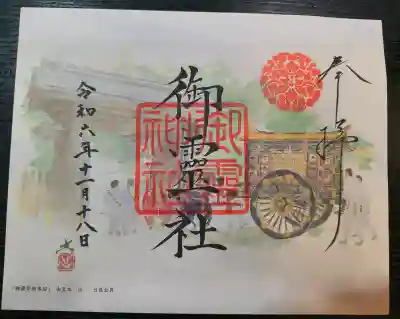 奉拝
御靈社
御靈神社
令和六年十一月十八日